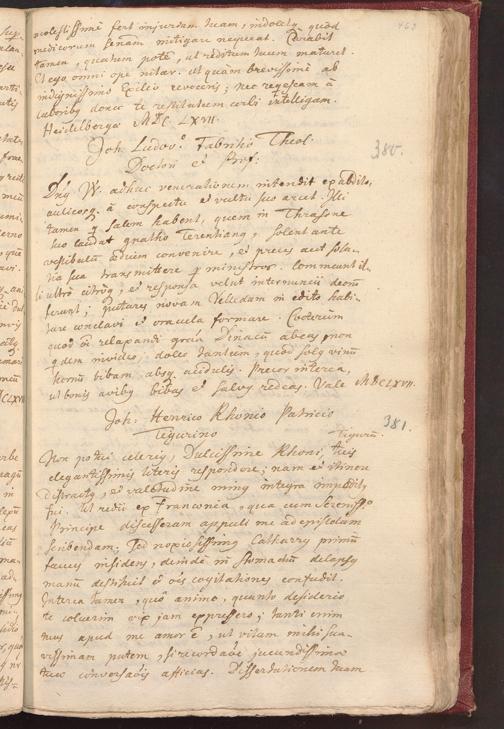 molestissimè fert injuriam tuam, indolet, quod
medicorum senam mitigare nequeat. Curabit
tamen, quantum potè, ut reditum tuum maturet.
Et ego omni ope nitar, ut quàm brevissimè ab
indignissimo Exilio revoceris; nec requiescam à
laboribus donec te restitutum orbi intelligam.
Heidelberga MDC LXVII.
Joh. Ludov.º Fabritio Theol.
Doctori et Prof.
380.
W. adhuc venerationem intendit ex abdito,
aulicosq à conspectu et vultu suo arcet. Illi
tamen q salem habent, quem in Thrasone
suo laudat gnatho Terentiang, solent ante
vestibulum adium convenire, et preces aut sola-
tia sua transmittere p ministros. Commeant il-
li ultrò citròq, et responsa velut internuncii deorũ
ferunt; putares novam Velledam in edito habi-
tare conclavi et oracula formare. Cæterum
quòd relaxandi gratiâ Dinacũ abeas, non
qdem invideo, doleo tantum, quòd solg vinũ
hornũ bibam absq acidulis. Precor interea,
ut bonis avibg bibas et salvus redeas. Vale MDCLXVII.
Joh. Henrico Rhonio Patricio
Tigurino
381.
Tigurũ.
Non potui celeris, Dulcissime Rhoni, tuis
elegantissimis literis respondere; nam et itinere
distractg, et valetudine ming integra impeditg
fui. Ut redii ex Franconia, quâ cum Serenissº
Principe discesseram appuli me ad epistolam
scribendam. Sed noxiosissimg Catharrg primũ
fauces insidens, deinde in stomachũ delapsg
manũ destituit et oẽs cogitationes confudit.
Interea tamen, quo animo, quanto desiderio
te coluerim vix jam expressero; tanti enim
tuus apud me amor ẽ, ut vitam mihi sua-
vissimam putem, si recordaõe jucundissimæ
tuæ conversaõis afficias. Dissertationem tuam